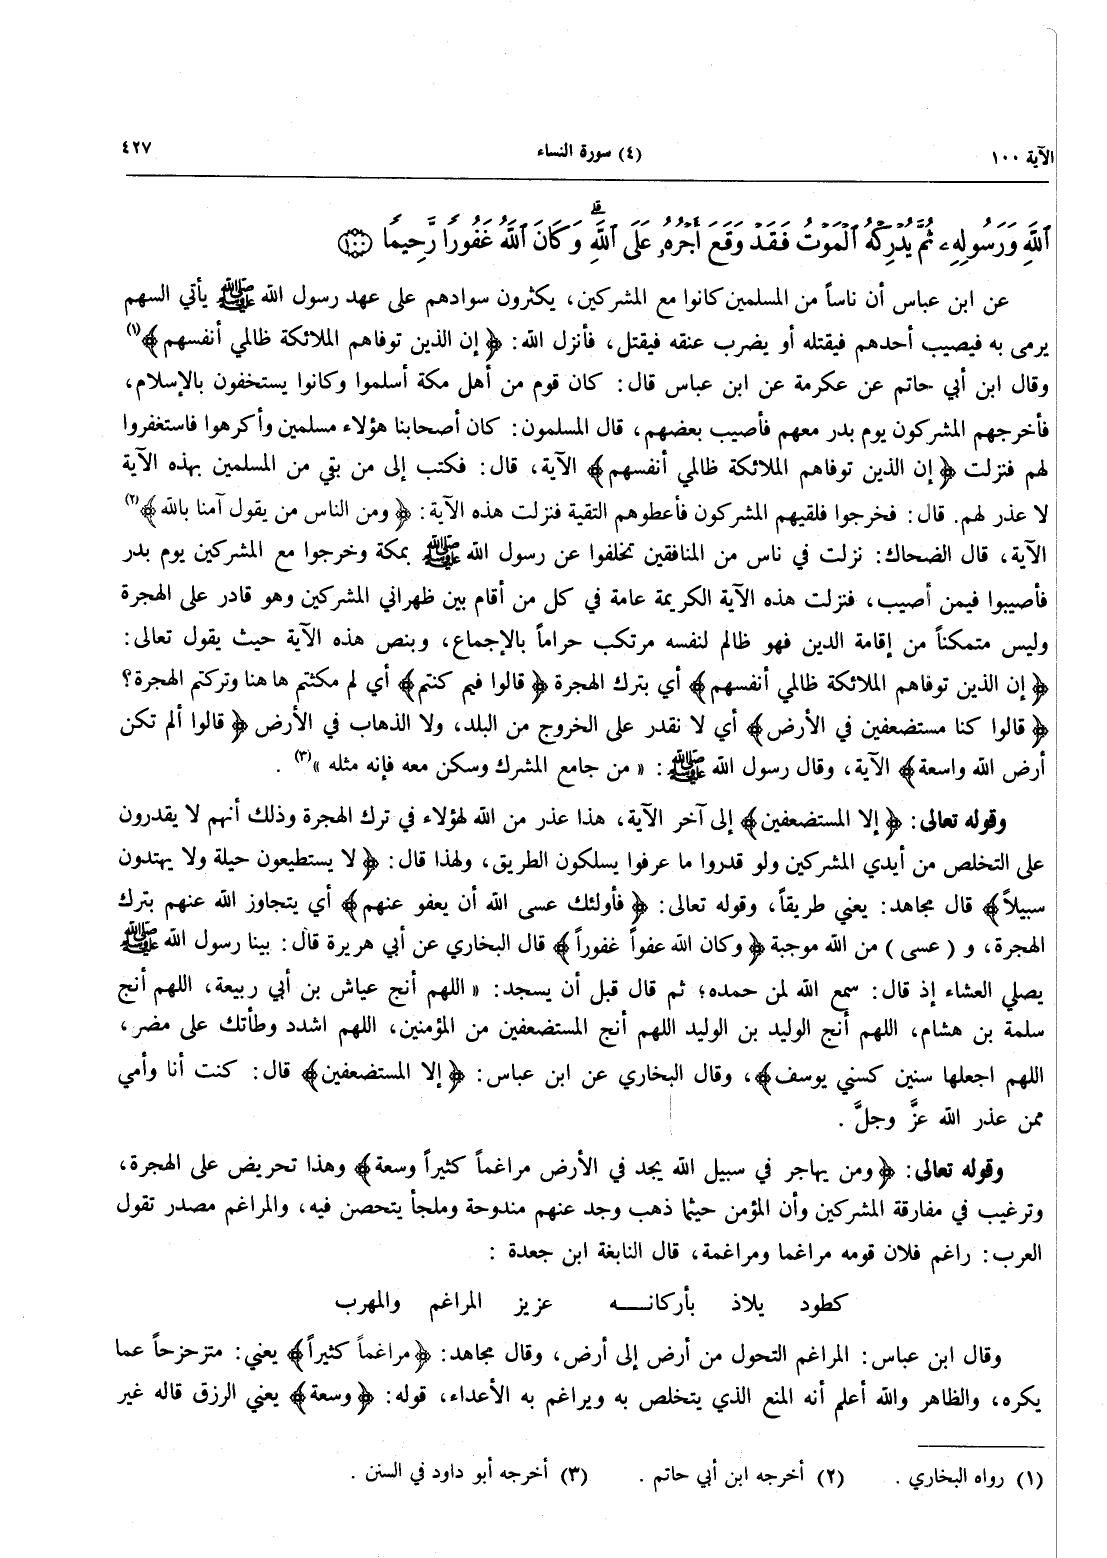 الآية ١٠٠
(٤) سورة النساء
٤٢٧
ٱللَّهِ وَرَسُولِهِۦ ثُمَّ يُدْرِكْهُ ٱلْمَوْتُ فَقَدْ وَقَعَ أَجْرُهُۥ عَلَى ٱللَّهِۗ وَكَانَ ٱللَّهُ غَفُورًا رَّحِيمًا ﴿١٠٠﴾
عن ابن عباس أن ناساً من المسلمين كانوا مع المشركين، يكثرون سوادهم على عهد رسول الله ﷺ يأتي السهم
يرمى به فيصيب أحدهم فيقتله أو يضرب عنقه فيقتل، فأنزل الله: ﴿إن الذين توفاهم الملائكة ظالمي أنفسهم﴾(١)
وقال ابن أبي حاتم عن عكرمة عن ابن عباس قال: كان قوم من أهل مكة أسلموا وكانوا يستخفون بالإسلام،
فأخرجهم المشركون يوم بدر معهم فأصيب بعضهم، قال المسلمون: كان أصحابنا هؤلاء مسلمين وأكرهوا فاستغفروا
لهم فنزلت ﴿إن الذين توفاهم الملائكة ظالمي أنفسهم﴾ الآية، قال: فكتب إلى من بقي من المسلمين بهذه الآية
لا عذر لهم. قال: فخرجوا فلقيهم المشركون فأعطوهم التقية فنزلت هذه الآية: ﴿ومن الناس من يقول آمنا بالله﴾(٢)
الآية، قال الضحاك: نزلت في ناس من المنافقين تخلفوا عن رسول الله ﷺ بمكة وخرجوا مع المشركين يوم بدر
فأصيبوا فيمن أصيب، فنزلت هذه الآية الكريمة عامة في كل من أقام بين ظهراني المشركين وهو قادر على الهجرة
وليس متمكناً من إقامة الدين فهو ظالم لنفسه مرتكب حراماً بالإجماع، وبنص هذه الآية حيث يقول تعالى:
﴿إن الذين توفاهم الملائكة ظالمي أنفسهم﴾ أي بترك الهجرة ﴿قالوا فيم كنتم﴾ أي لم مكثتم ها هنا وتركتم الهجرة؟
﴿قالوا كنا مستضعفين في الأرض﴾ أي لا نقدر على الخروج من البلد، ولا الذهاب في الأرض ﴿قالوا ألم تكن
أرض الله واسعة﴾ الآية، وقال رسول الله ﷺ: « من جامع المشرك وسكن معه فإنه مثله »(٣) .
وقوله تعالى: ﴿إلا المستضعفين﴾ إلى آخر الآية، هذا عذر من الله لهؤلاء في ترك الهجرة وذلك أنهم لا يقدرون
على التخلص من أيدي المشركين ولو قدروا ما عرفوا يسلكون الطريق، ولهذا قال: ﴿لا يستطيعون حيلة ولا يهتدون
سبيلاً﴾ قال مجاهد: يعني طريقاً، وقوله تعالى: ﴿فأولئك عسى الله أن يعفو عنهم﴾ أي يتجاوز الله عنهم بترك
الهجرة، و ( عسى ) من الله موجبة ﴿وكان الله عفواً غفوراً﴾ قال البخاري عن أبي هريرة قال: بينا رسول الله ﷺ
يصلي العشاء إذ قال: سمع الله لمن حمده؛ ثم قال قبل أن يسجد: « اللهم أنج عياش بن أبي ربيعة، اللهم أنج
سلمة بن هشام، اللهم أنج الوليد بن الوليد اللهم أنج المستضعفين من المؤمنين، اللهم اشدد وطأتك على مضر،
اللهم اجعلها سنين كسني يوسف﴾، وقال البخاري عن ابن عباس: ﴿إلا المستضعفين﴾ قال: كنت أنا وأمي
ممن عذر الله عزَّ وجلَّ .
وقوله تعالى: ﴿ومن يهاجر في سبيل الله يجد في الأرض مراغماً كثيراً وسعة﴾ وهذا تحريض على الهجرة،
وترغيب في مفارقة المشركين وأن المؤمن حيثما ذهب وجد عنهم مندوحة وملجأ يتحصن فيه، والمراغم مصدر تقول
العرب: راغم فلان قومه مراغما ومراغمة، قال النابغة ابن جعدة :
كطود يلاذ بأركانـــه عزيز المراغم والمهرب
وقال ابن عباس: المراغم التحول من أرض إلى أرض، وقال مجاهد: ﴿مراغماً كثيراً﴾ يعني: متزحزحاً عما
يكره، والظاهر والله أعلم أنه المنع الذي يتخلص به ويراغم به الأعداء، قوله: ﴿وسعة﴾ يعني الرزق قاله غير
(١) رواه البخاري . (٢) أخرجه ابن أبي حاتم . (٣) أخرجه أبو داود في السنن .